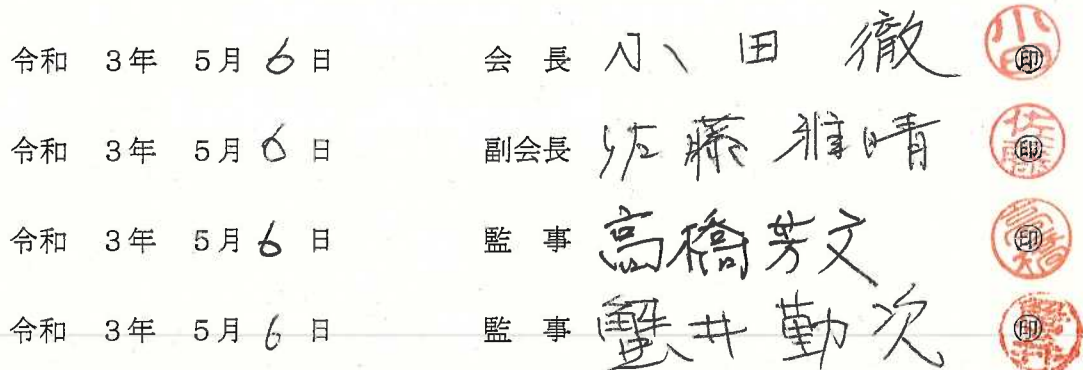 令和 3年 5月 6日 会長 小田 徹 ㊞
令和 3年 5月 6日 副会長 佐藤雅晴 ㊞
令和 3年 5月 6日 監事 高橋芳文 ㊞
令和 3年 5月 6日 監事 蟹井勤次 ㊞